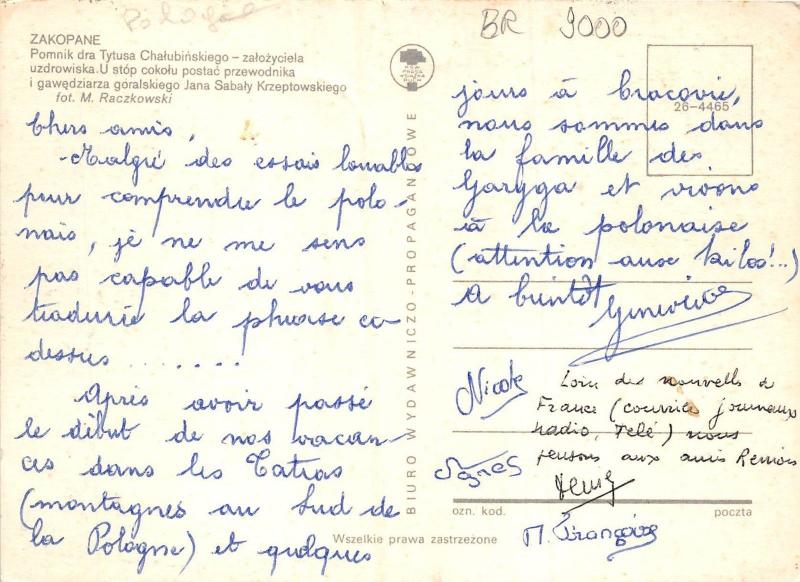 Pologne
BR 9000
ZAKOPANE
Pomnik dra Tytusa Chałubińskiego – założyciela
uzdrowiska. U stóp cokołu postać przewodnika
i gawędziarza góralskiego Jana Sabały Krzeptowskiego
fot. M. Raczkowski
Chers amis,
Malgré des essais louables
pour comprendre le polo-
nais, je ne me sens
pas capable de vous
traduire la phrase ci-
dessus ........
Après avoir passé
le début de nos vacan-
ces dans les Tatras
(montagnes au Sud de
la Pologne) et quelques
BIURO WYDAWNICZO-PROPAGANDOWE
26-4465
jours à Cracovie,
nous sommes dans
la famille des
Garyga et vivons
à la polonaise
(attention aux kilos!...)
A bientôt
Geneviève
Nicole
Loin des nouvelles de
France (courrier journaux
radio, Télé) nous
pensons aux amis Rémois
Agnès
M. Françoise
ozn. kod.
poczta
Wszelkie prawa zastrzeżone